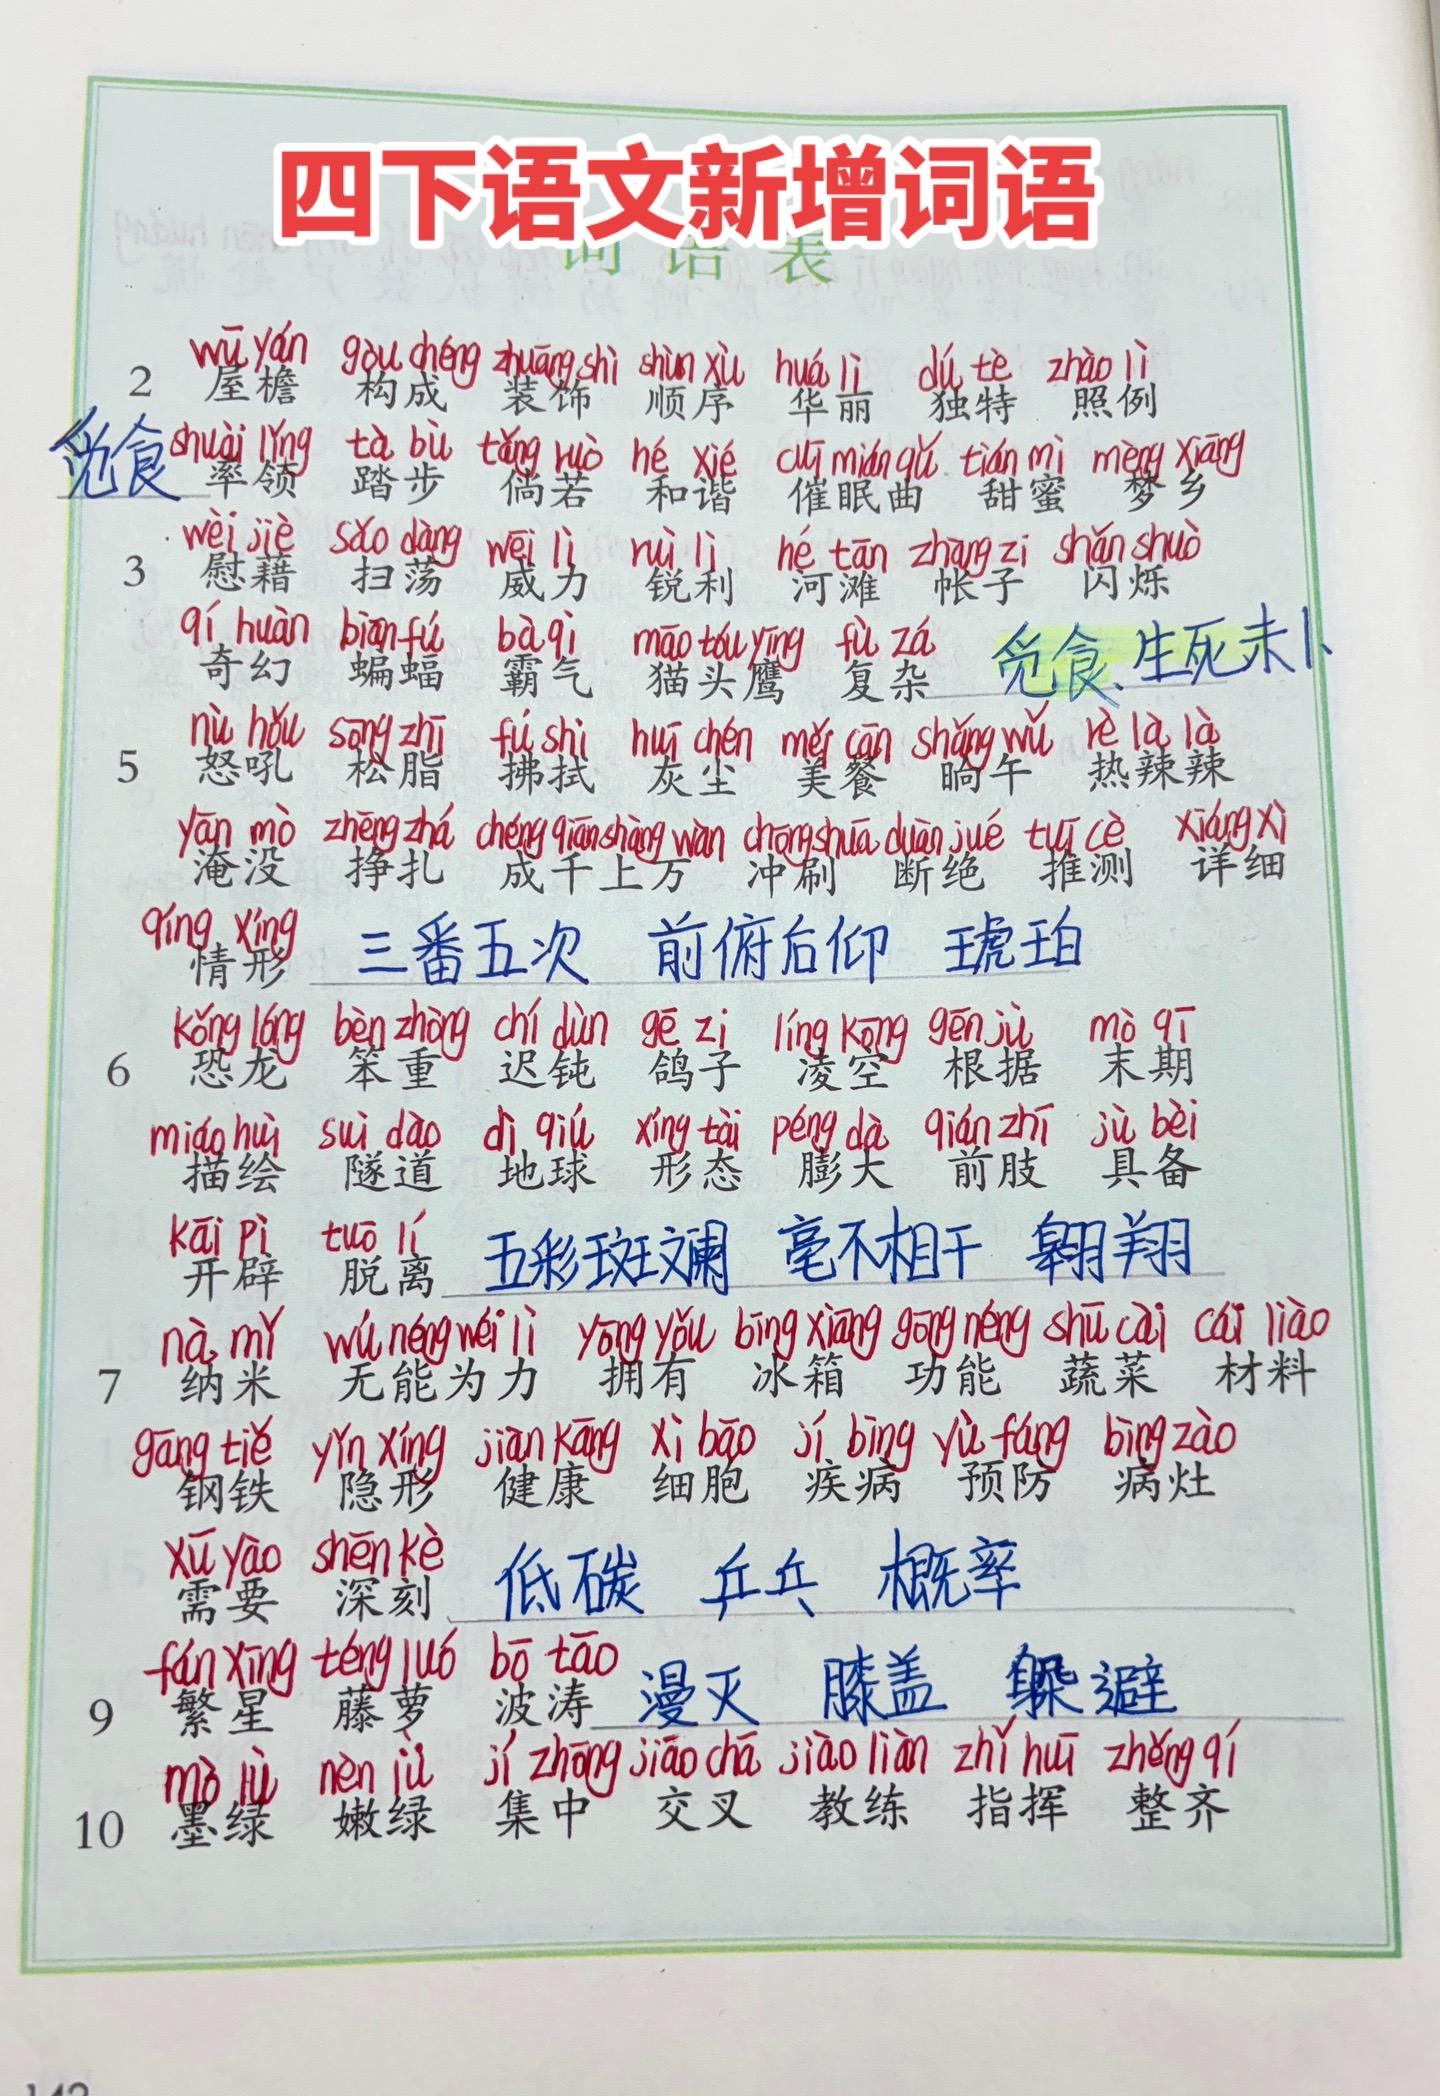 四下语文新增词语
词语表
wū yán gòu chéng zhuāng shì shùn xù huá lì dú tè zhào lì
2 屋檐 构成 装饰 顺序 华丽 独特 照例
shuài lǐng tà bù tǎng ruò hé xié cuī mián qǔ tián mì mèng xiāng
觅食 率领 踏步 倘若 和谐 催眠曲 甜蜜 梦乡
wèi jiè sǎo dàng wēi lì ruì lì hé tān zhàng zi shǎn shuò
3 慰藉 扫荡 威力 锐利 河滩 帐子 闪烁
qí huàn biān fú bà qì māo tóu yīng fù zá
奇幻 蝙蝠 霸气 猫头鹰 复杂 觅食、生死未卜
nù hǒu sōng zhī fú shì huī chén měi cān shǎng wǔ rè là là
5 怒吼 松脂 拂拭 灰尘 美餐 晌午 热辣辣
yān mò zhēng zhá chéng qiān shàng wàn chōng shuā duàn jué tuī cè xiáng xì
淹没 挣扎 成千上万 冲刷 断绝 推测 详细
qíng xíng
情形 三番五次 前俯后仰 琥珀
kǒng lóng bèn zhòng chí dùn gē zi líng kōng gēn jù mò qī
6 恐龙 笨重 迟钝 鸽子 凌空 根据 末期
miáo huì suì dào dì qiú xíng tài péng dà qián zhī jù bèi
描绘 隧道 地球 形态 膨大 前肢 具备
kāi pì tuō lí
开辟 脱离 五彩斑斓 毫不相干 翱翔
nà mǐ wú néng wéi lì yōng yǒu bīng xiāng gōng néng shū cài cái liào
7 纳米 无能为力 拥有 冰箱 功能 蔬菜 材料
gāng tiě yǐn xíng jiàn kāng xì bāo jí bìng yù fáng bìng zào
钢铁 隐形 健康 细胞 疾病 预防 病灶
xū yào shēn kè
需要 深刻 低碳 乒乓 概率
fán xīng téng luó bō tāo
9 繁星 藤萝 波涛 漫灭 膝盖 躲避
mò lǜ nèn lǜ jí zhōng jiāo chā jiào liàn zhǐ huī zhěng qí
10 墨绿 嫩绿 集中 交叉 教练 指挥 整齐